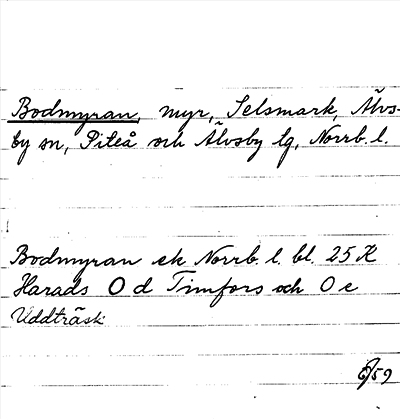 Bodmyran, myr, Selsmark, Älvs-
by sn, Piteå och Älvsby lg, Norrb. l.
Bodmyran ek Norrb. l. bl. 25 K
Harads 0 d Timfors och 0 e
Uddträsk
59